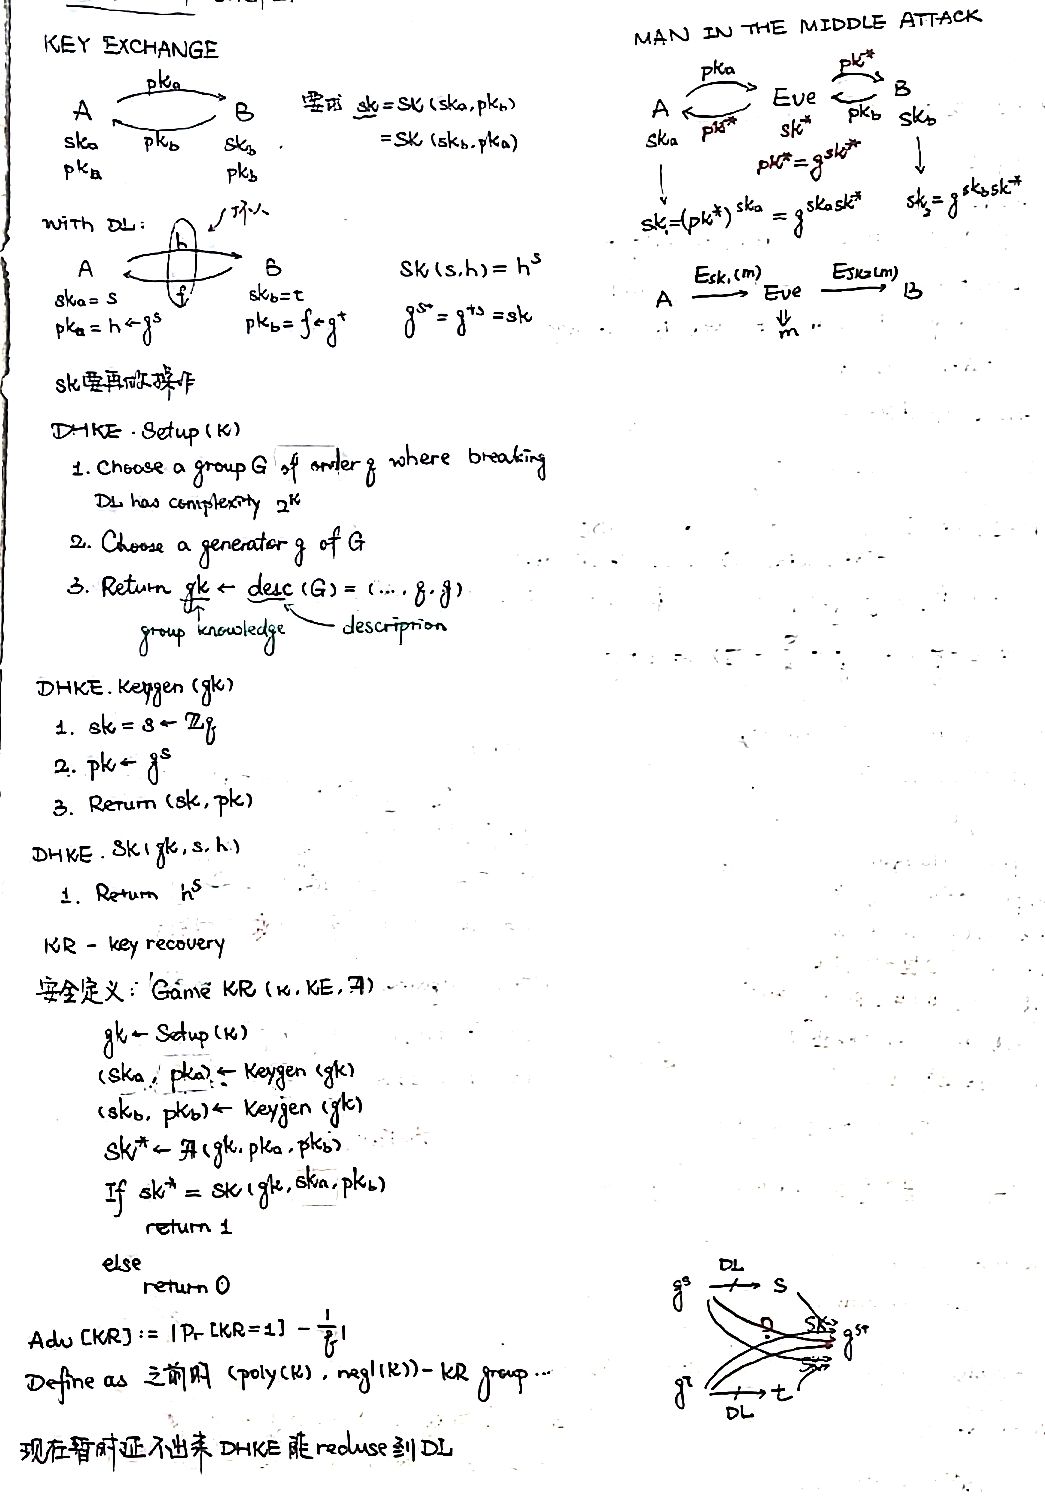 KEY EXCHANGE
A pka B
ska pkb skb
pka pkb
要求 sk = SK (ska, pkb)
= SK (skb, pka)
With DL: 环人
A h B
ska = s f skb = t
pka = h ← g^s pkb = f ← g^t
SK (s, h) = h^s
g^st = g^ts = sk
sk要再做操作
DHKE. Setup (K)
1. Choose a group G of order q where breaking
DL has complexity 2^K
2. Choose a generator g of G
3. Return gk ← desc (G) = (..., q, g)
group knowledge description
DHKE. Keygen (gk)
1. sk = s ← ℤq
2. pk ← g^s
3. Return (sk, pk)
DHKE. SK (gk, s, h)
1. Return h^s
KR - key recovery
安全定义: Game KR (K, KE, A)
gk ← Setup (K)
(ska, pka) ← Keygen (gk)
(skb, pkb) ← Keygen (gk)
SK* ← A (gk, pka, pkb)
If sk* = SK (gk, ska, pkb)
return 1
else
return 0
Adv [KR] := |Pr [KR=1] - 1/q|
Define as 之前的 (poly(K), negl(K)) - KR group ...
现在暂时证不出来 DHKE 能 reduse 到 DL
MAN IN THE MIDDLE ATTACK
A pka Eve pk* B
ska pk* sk* pkb skb
pk* = g^sk*
sk₁ = (pk*)^ska = g^skask* sk₂ = g^skbsk*
A Esk₁(m) Eve Esk₂(m) B
m
g^s DL s
? SK g^st
SK
g^t DL t